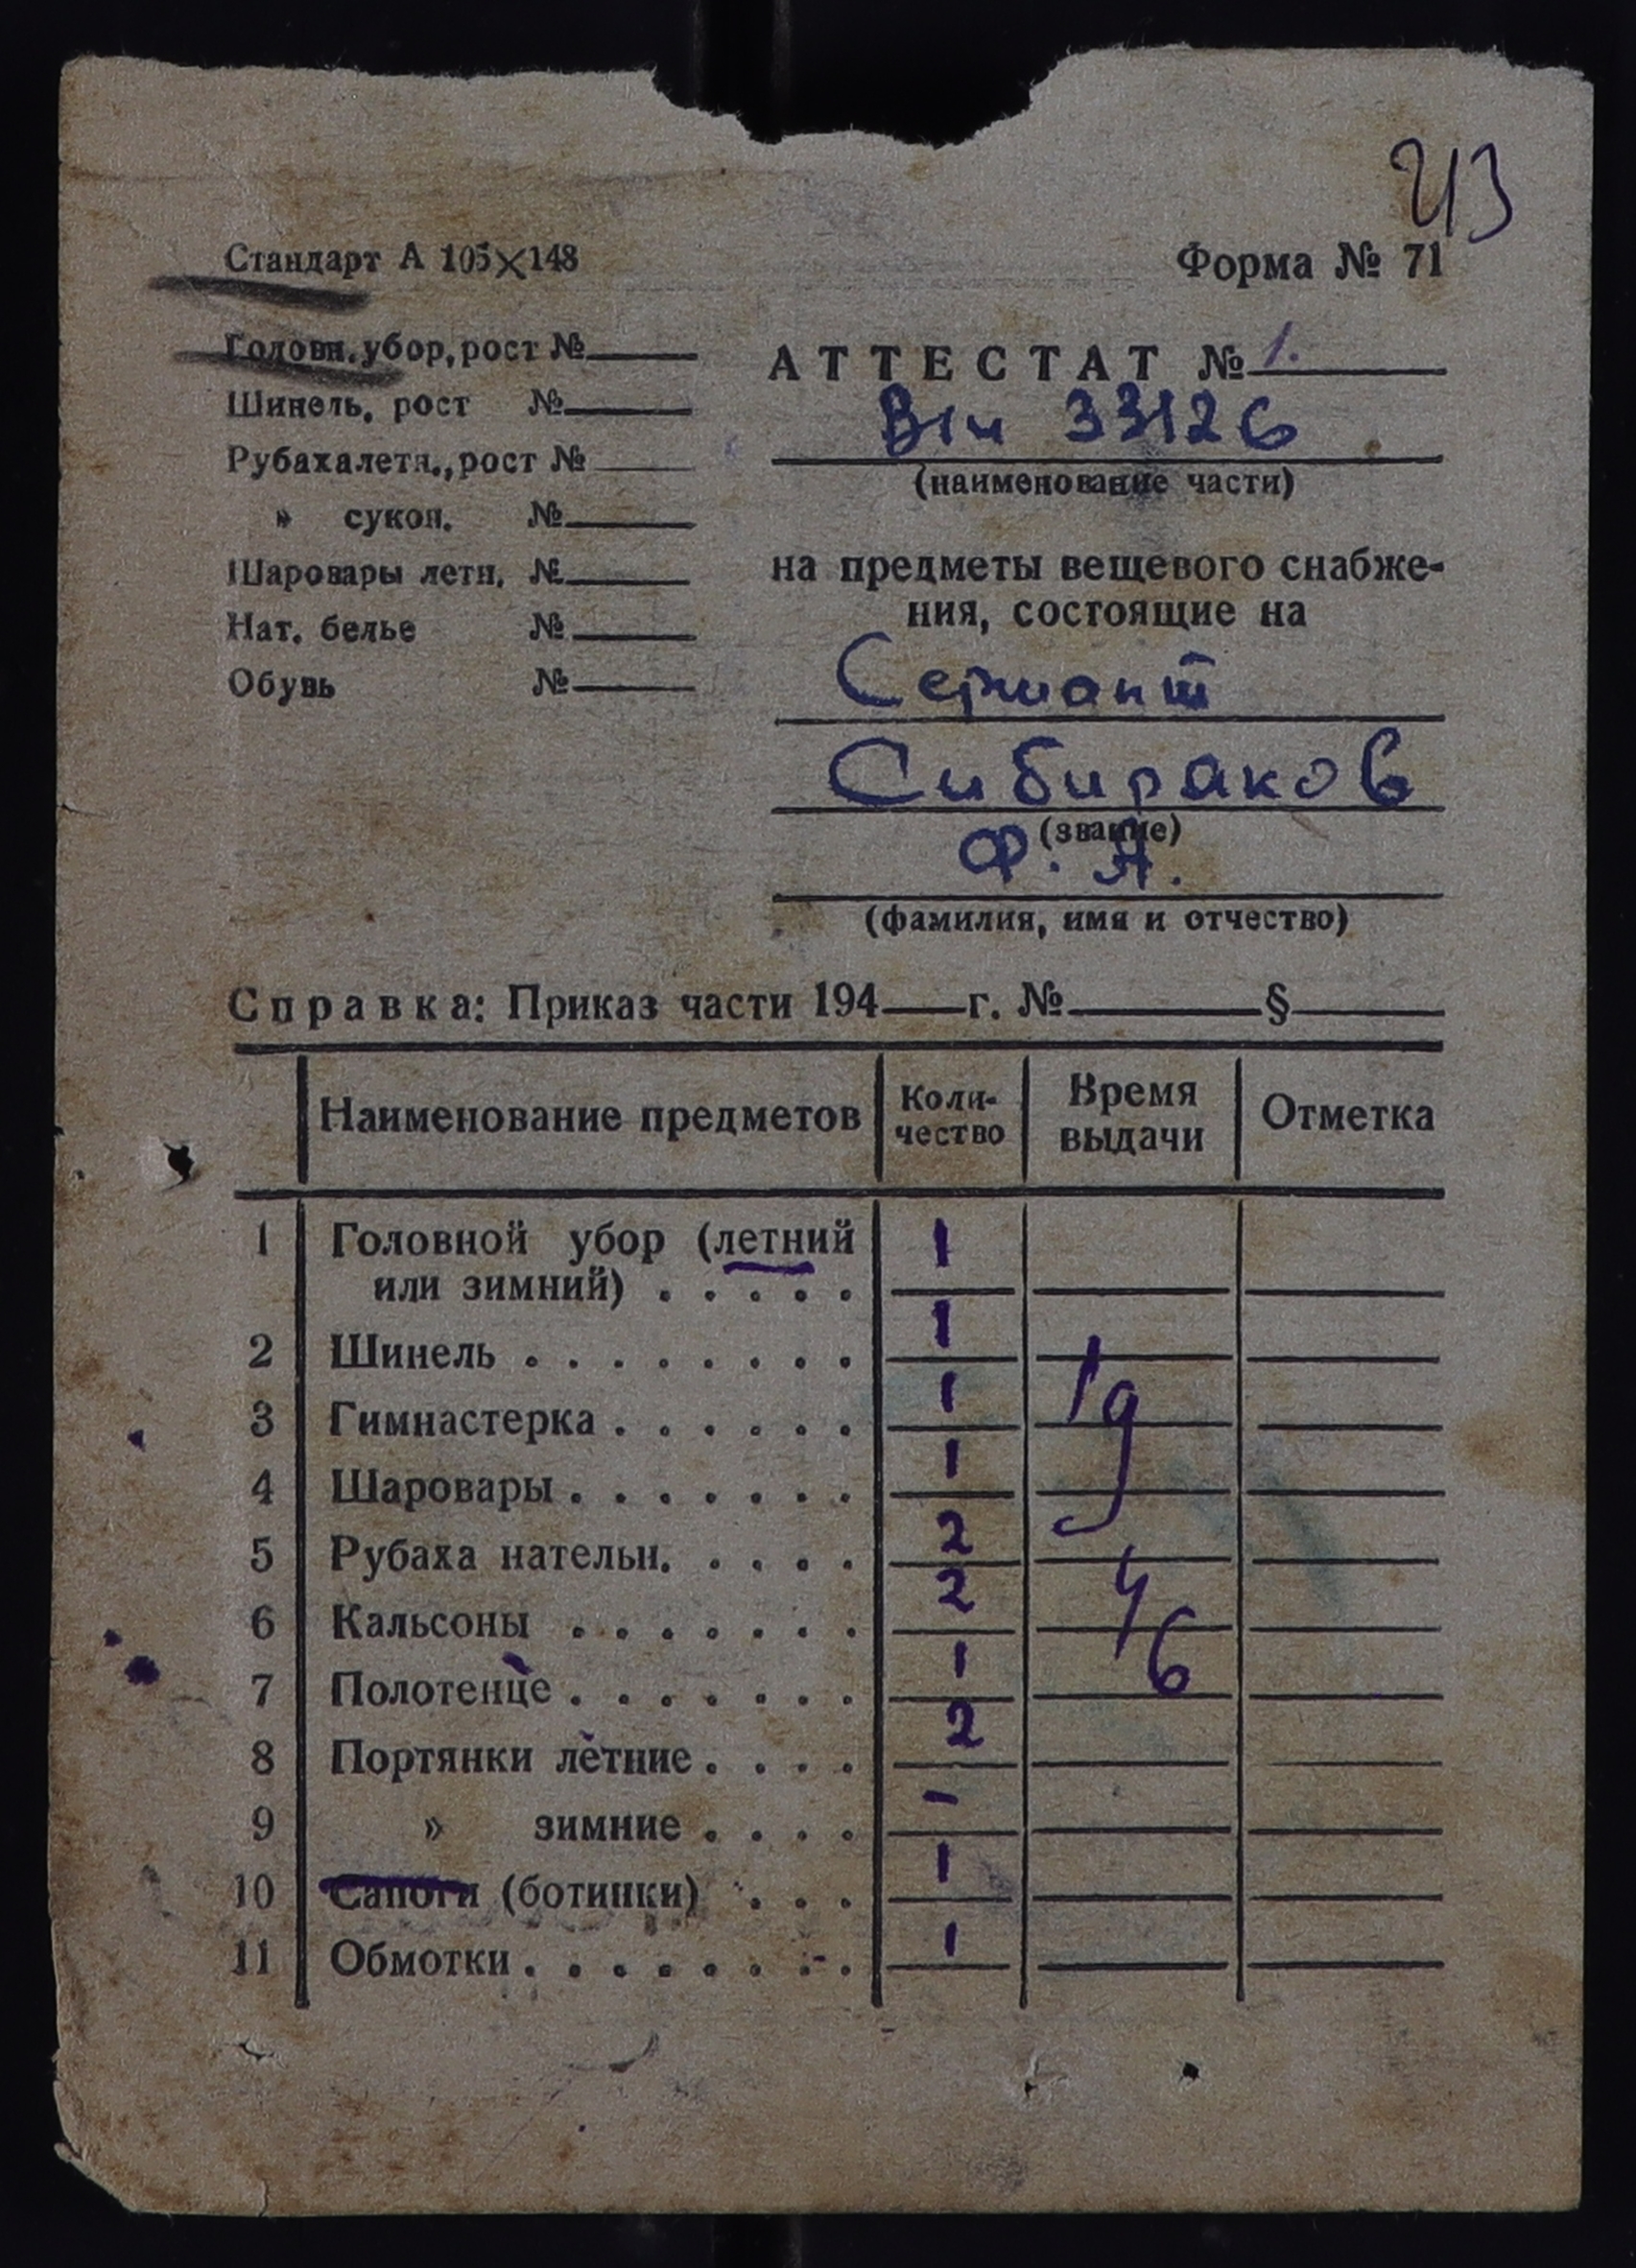 213
Стандарт А 105×148
Форма № 71
Головн. убор, рост №
Шинель, рост №
Рубаха летн., рост №
» сукон. №
Шаровары летн. №
Нат. белье №
Обувь №
АТТЕСТАТ № 1.
В/ч 33126
(наименование части)
на предметы вещевого снабже-
ния, состоящие на
Сержант
Сибираков
(звание)
Ф. А.
(фамилия, имя и отчество)
Справка: Приказ части 194 г. № §
Наименование предметов Коли-чество Время выдачи Отметка
1 Головной убор (летний 1
или зимний) . . . . .
2 Шинель . . . . . . . . 1
3 Гимнастерка . . . . . . 1
4 Шаровары . . . . . . . 1
5 Рубаха нательн. . . . . 2
6 Кальсоны . . . . . . . 2
7 Полотенце . . . . . . . 1
8 Портянки летние . . . . 2
9 » зимние . . . . -
10 Сапоги (ботинки) . . . 1
11 Обмотки . . . . . . . . 1
19
46